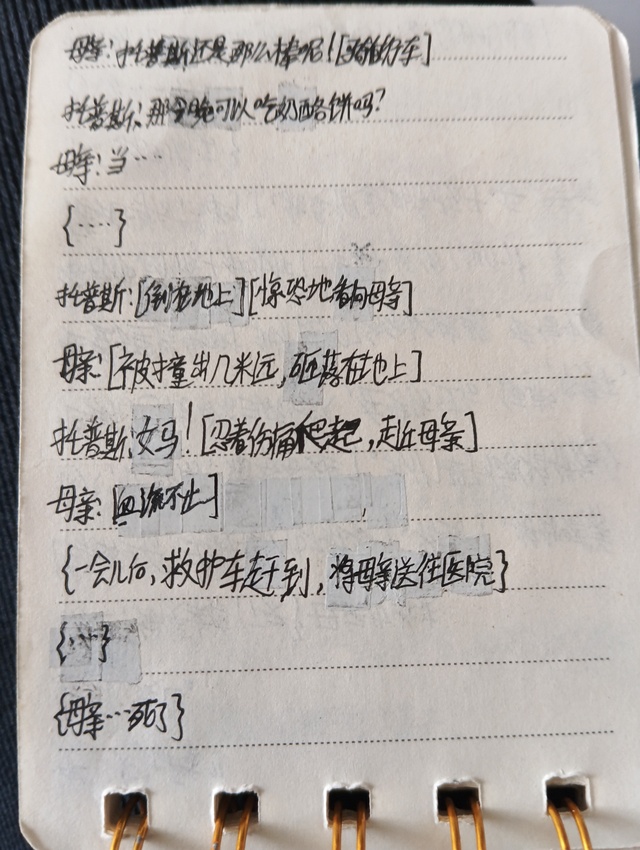 母亲:托普斯还是那么棒呢![骑自行车]
托普斯:那今晚可以吃奶酪饼吗?
母亲:当…
{……}
托普斯:[倒在地上][惊恐地看向母亲]
母亲:[被撞出几米远,砸落在地上]
托普斯:女马![忍着伤痛爬起,走近母亲]
母亲:[血流不止]
{一会儿后,救护车赶到,将母亲送往医院}
{…}
{母亲…死了}